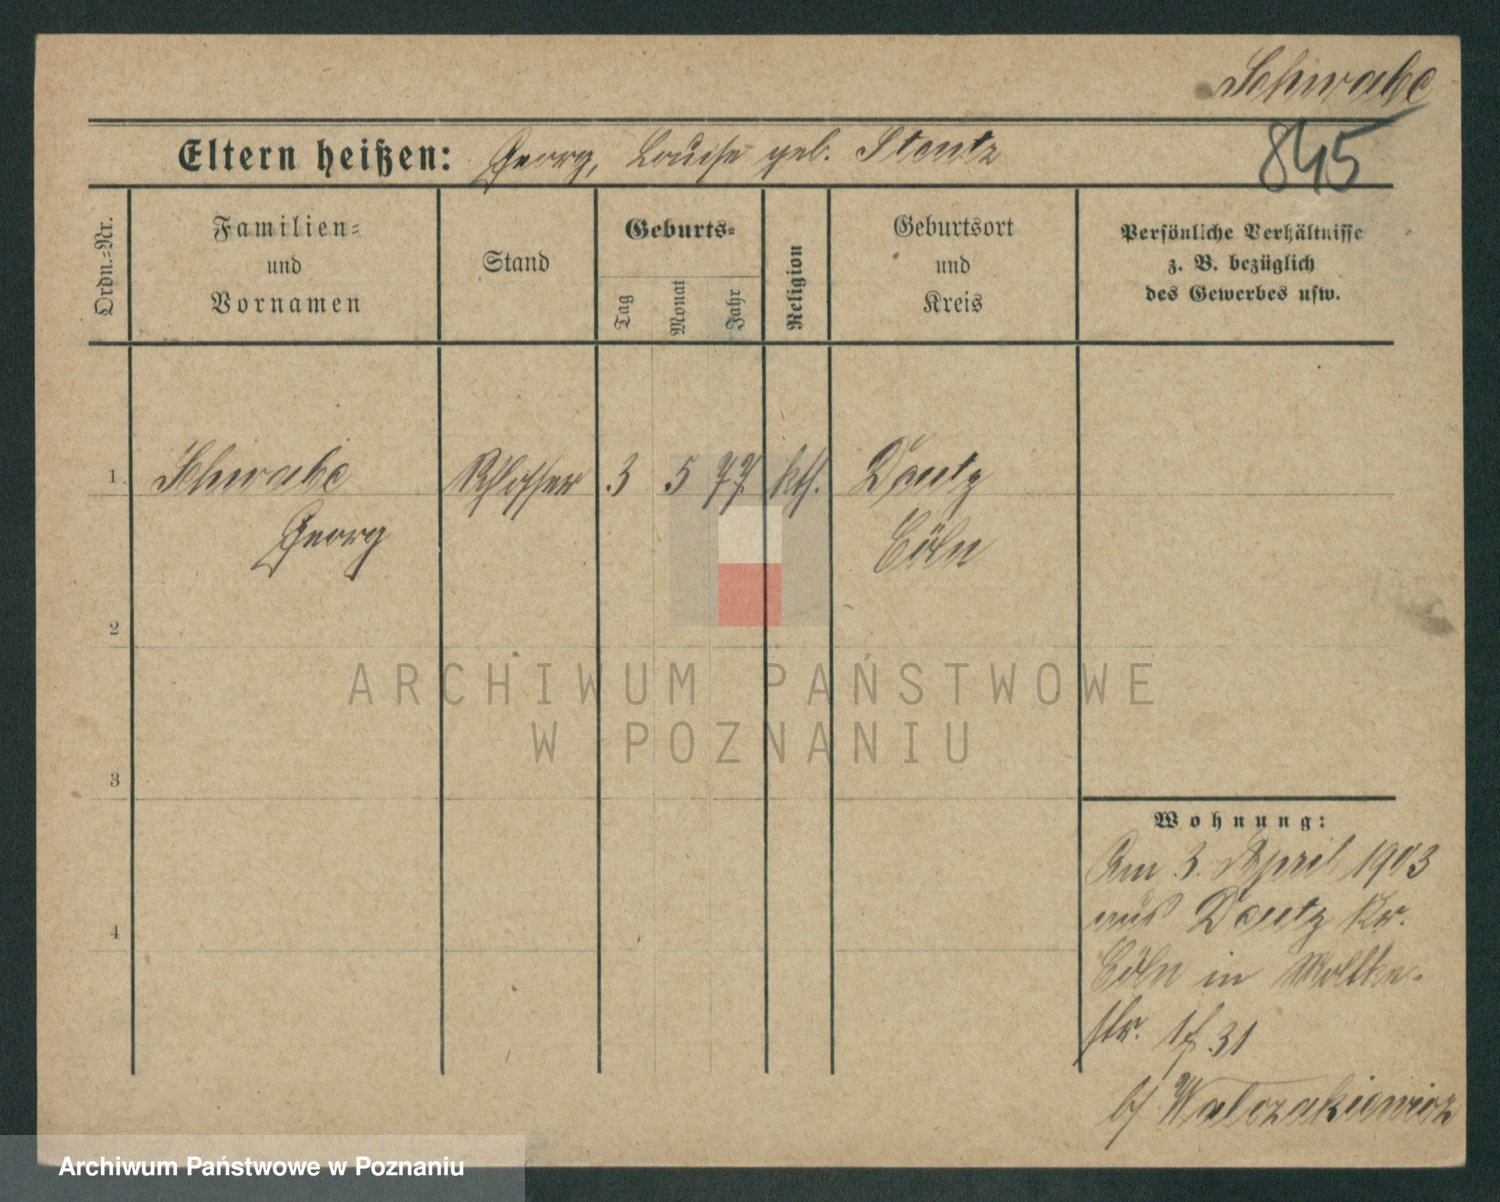 Schwabe
845
Eltern heißen: Georg, Louise geb. Stentz
Ordn.=Nr.
Familien=
und
Vornamen
Stand
Geburts=
Tag
Monat
Jahr
Religion
Geburtsort
und
Kreis
Persönliche Verhältnisse
z. B. bezüglich
des Gewerbes usw.
1 Schwabe Schlosser 3 5 77 kth. Deutz
Georg Cöln
2
3
4
Wohnung:
Am 3. April 1903
aus Deutz Kr.
Cöln in Moltke-
str. 31
b/ Walczakiewicz
ARCHIWUM PAŃSTWOWE
W POZNANIU
Archiwum Państwowe w Poznaniu